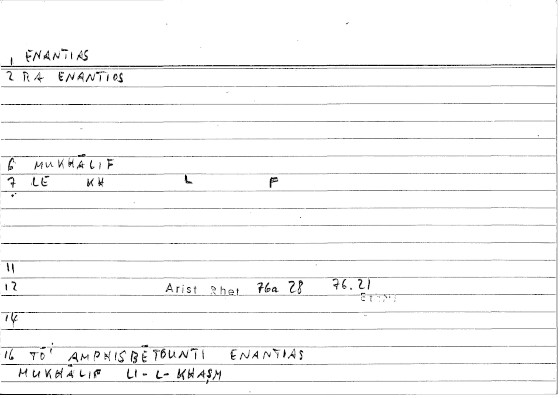 1 ENANTIAS
2 RA ENANTIOS
6 MUKHĀLIF
7 LE KH L F
11
12 Arist Rhet 76a 28 76.21
14
16 TŌI AMPHISBĒTOUNTI ENANTIAS
MUKHĀLIF LI-L-KHAṢM